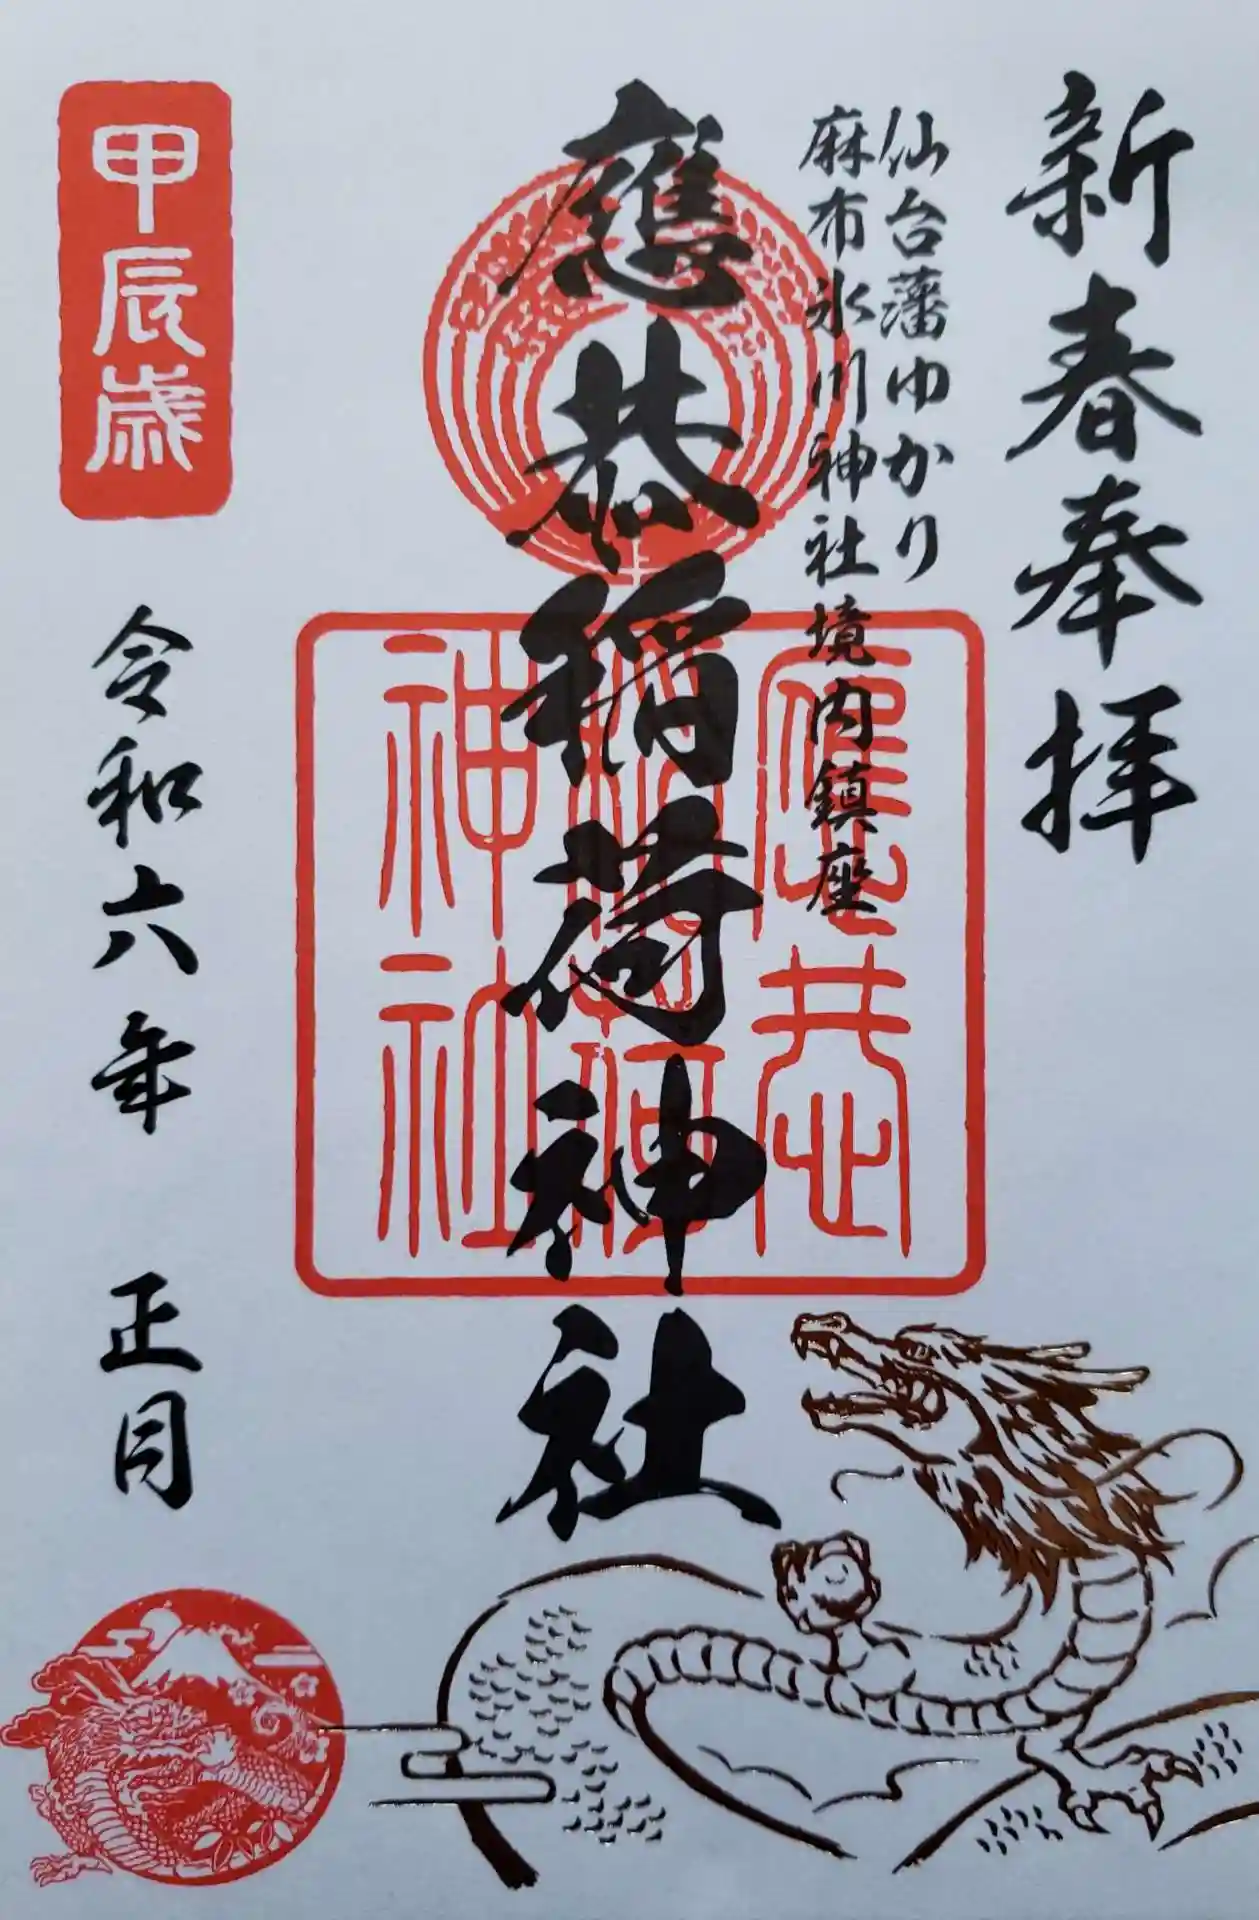 新春奉拝
仙台藩ゆかり
麻布氷川神社境内鎮座
應恭稲荷神社
應恭
稲荷
神社
甲辰歳
令和六年 正月